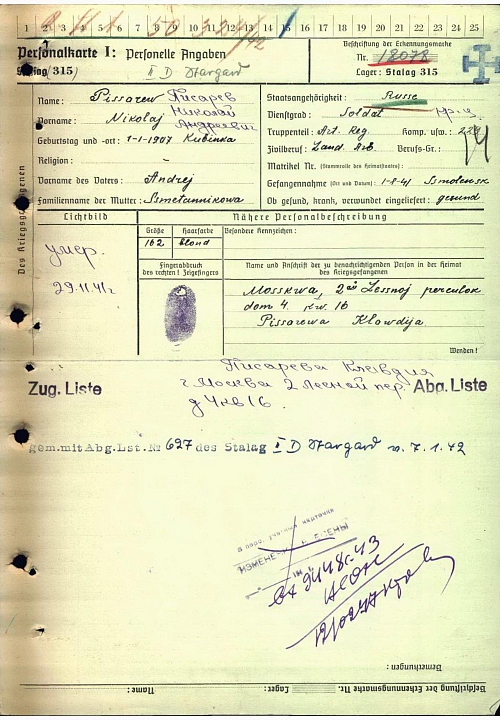 1 2 3 4 5 6 7 8 9 10 11 12 13 14 15 16 17 18 19 20 21 22 23 24 25
Personalkarte I: Personelle Angaben
Stalag 315)
II D Stargard
Beschriftung der Erkennungsmarke
Nr. 12078
Lager: Stalag 315
Des Kriegsgefangenen
Name: Pissarew Писарев
Vorname: Nikolaj Николай
Андреевич
Geburtstag und -ort: 1-1-1907 Kubinka
Religion:
Vorname des Vaters: Andrej
Familienname der Mutter: Smetannikowa
Staatsangehörigkeit: Russe
Dienstgrad: Soldat
Truppenteil: Art. Reg. Komp. usw.:
Zivilberuf: Land. Arb. Berufs-Gr.:
Matrikel Nr. (Stammrolle des Heimatstaates):
Gefangennahme (Ort und Datum): 1-8-41 Smolensk
Ob gesund, krank, verwundet eingeliefert: gesund
Lichtbild
умер.
29.11.41г
Nähere Personalbeschreibung
Größe Haarfarbe Besondere Kennzeichen:
162 blond
Fingerabdruck
des rechten! Zeigefingers
Name und Anschrift der zu benachrichtigenden Person in der Heimat
des Kriegsgefangenen
Mosskwa, 2 Lessnoj pereulok
dom 4. kw. 16
Pissarewa Klawdija
Wenden!
Писарева Клавдия
г. Москва 2 Лесной пер.
д 4 кв 16.
Zug. Liste
Abg. Liste
gem.mit Abg.Lst.№ 627 des Stalag II D Stargard v. 7.1.42
учетная карточка
Bemerkungen:
Beschriftung der Erkennungsmarke Nr. Lager: Name: